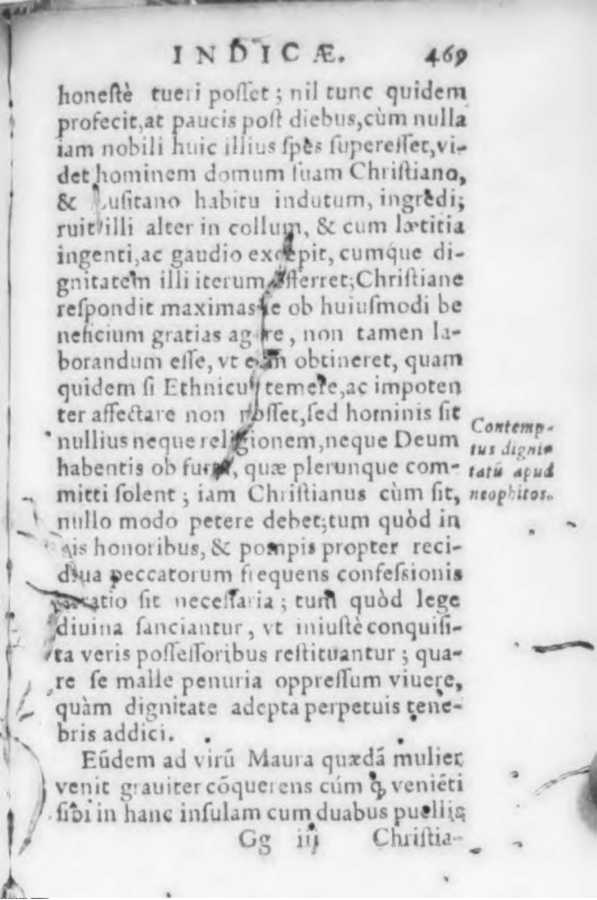 INDICÆ. 469
honeſtè tueri poſſet; nil tunc quidem
profecit, at paucis poſt diebus, cùm nulla
iam nobili huic illius ſpes ſupereſſet, vi-
det hominem domum ſuam Chriſtiano,
& Luſitano habitu indutum, ingredi;
ruit illi alter in collum, & cum lætitia
ingenti, ac gaudio excepit, cumq́ue di-
gnitatem illi iterum offerret; Chriſtiane
reſpondit maximas ſe ob huiuſmodi be
neficium gratias agere, non tamen la-
borandum eſſe, vt eam obtineret, quam
quidem ſi Ethnicus temere, ac impoten
ter affectare non poſſet, ſed hominis ſit
nullius neque religionem, neque Deum
habentis ob furta, quæ plerunque com-
mitti ſolent; iam Chriſtianus cùm ſit,
nullo modo petere debet; tum quòd in
his honoribus, & pompis propter reci-
diua peccatorum frequens confeſsionis
ſit neceſſaria; tum quòd lege
diuina ſanciantur, vt iniuſtè conquiſi-
ta veris poſſeſſoribus reſtituantur; qua-
re ſe malle penuria oppreſſum viuere,
quàm dignitate adepta perpetuis tene-
bris addici.
Contemp-
tus digni-
tatũ apud
neophitos.
Eũdem ad virũ Maura quædã mulier
venit grauiter cõquerens cúm ꝙ veniẽti
ſibi in hanc inſulam cum duabus puellis
Gg iij Chriſtia-